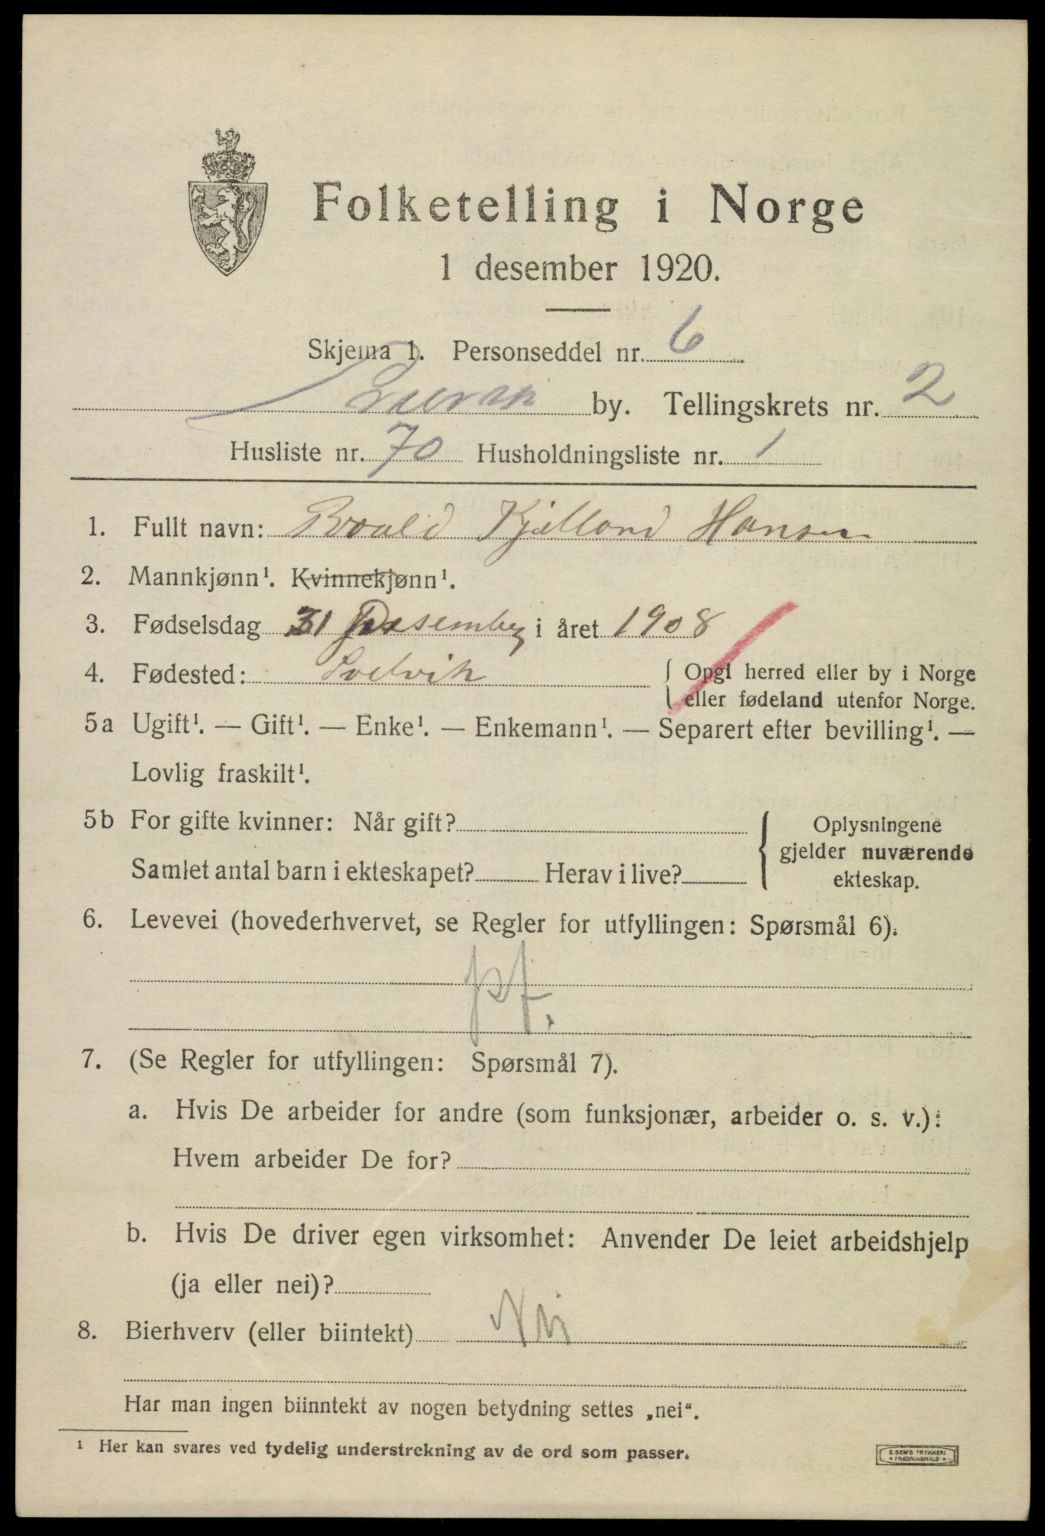 Folketelling i Norge
1 desember 1920.
Skjema 1. Personseddel nr. 6
by. Tellingskrets nr. 2
Husliste nr. 70 Husholdningsliste nr. 1
1. Fullt navn: Kjelland Hansen
2. Mannkjønn¹. Kvinnekjønn¹.
3. Fødselsdag 31 Desember i året 1908
4. Fødested: Svelvik { Opgi herred eller by i Norge
eller fødeland utenfor Norge.
5a Ugift¹. — Gift¹. — Enke¹. — Enkemann¹. — Separert efter bevilling¹. —
Lovlig fraskilt¹.
5b For gifte kvinner: Når gift? { Oplysningene
gjelder nuværende
Samlet antal barn i ekteskapet? Herav i live? ekteskap.
6. Levevei (hovederhvervet, se Regler for utfyllingen: Spørsmål 6).
pf.
7. (Se Regler for utfyllingen: Spørsmål 7).
a. Hvis De arbeider for andre (som funksjonær, arbeider o. s. v.):
Hvem arbeider De for?
b. Hvis De driver egen virksomhet: Anvender De leiet arbeidshjelp
(ja eller nei)?
8. Bierhverv (eller biintekt) Nei
Har man ingen biinntekt av nogen betydning settes „nei“.
¹ Her kan svares ved tydelig understrekning av de ord som passer.
E. SEM'S TRYKKERI
FREDRIKSHALD